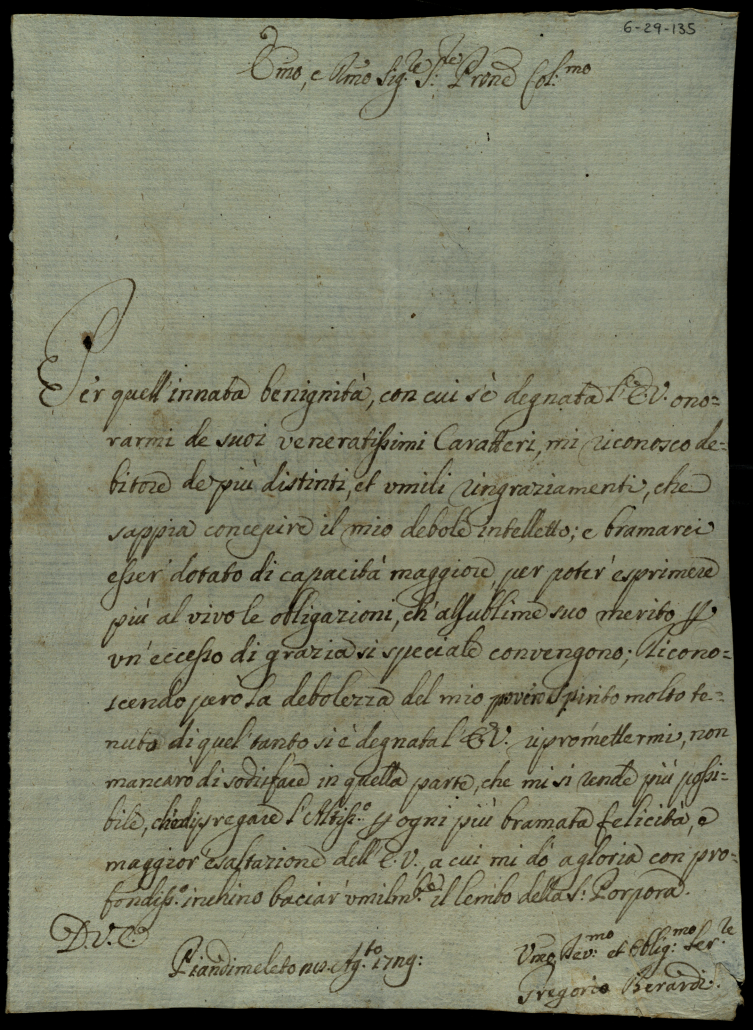 6-29-135
Emo, e Rmo Sig:re S:re Prone Col:mo
Per quell'innata benignità, con cui s'è degnata l'E.V. ono=
rarmi de suoi veneratissimi Caratteri, mi riconosco de=
bitore de più distinti, et umili ringraziamenti, che
sappia concepire il mio debole intelletto; e bramarei
esser dotato di capacità maggiore, per poter esprimere
più al vivo le obligazioni, ch'al sublime suo merito p
un'eccesso di grazia si speciale convengono; Ricono=
scendo però la debolezza del mio povero spirito molto te=
nuto di quel tanto si è degnata l'E.V. ripromettermi, non
mancarò di sodisfare in quella parte, che mi si rende più possi=
bile, ch'è di pregare l'Altiss:o p ogni più bramata felicità, e
maggior esaltazione dell'E.V., a cui mi dò a gloria con pro=
fondiss:o inchino baciar umilm:te il lembo della S: Porpora.
D.V.E.
Piandimeleto Ag:to
Umo Dev:mo et Oblig:mo Ser:re
Gregorio Berardi